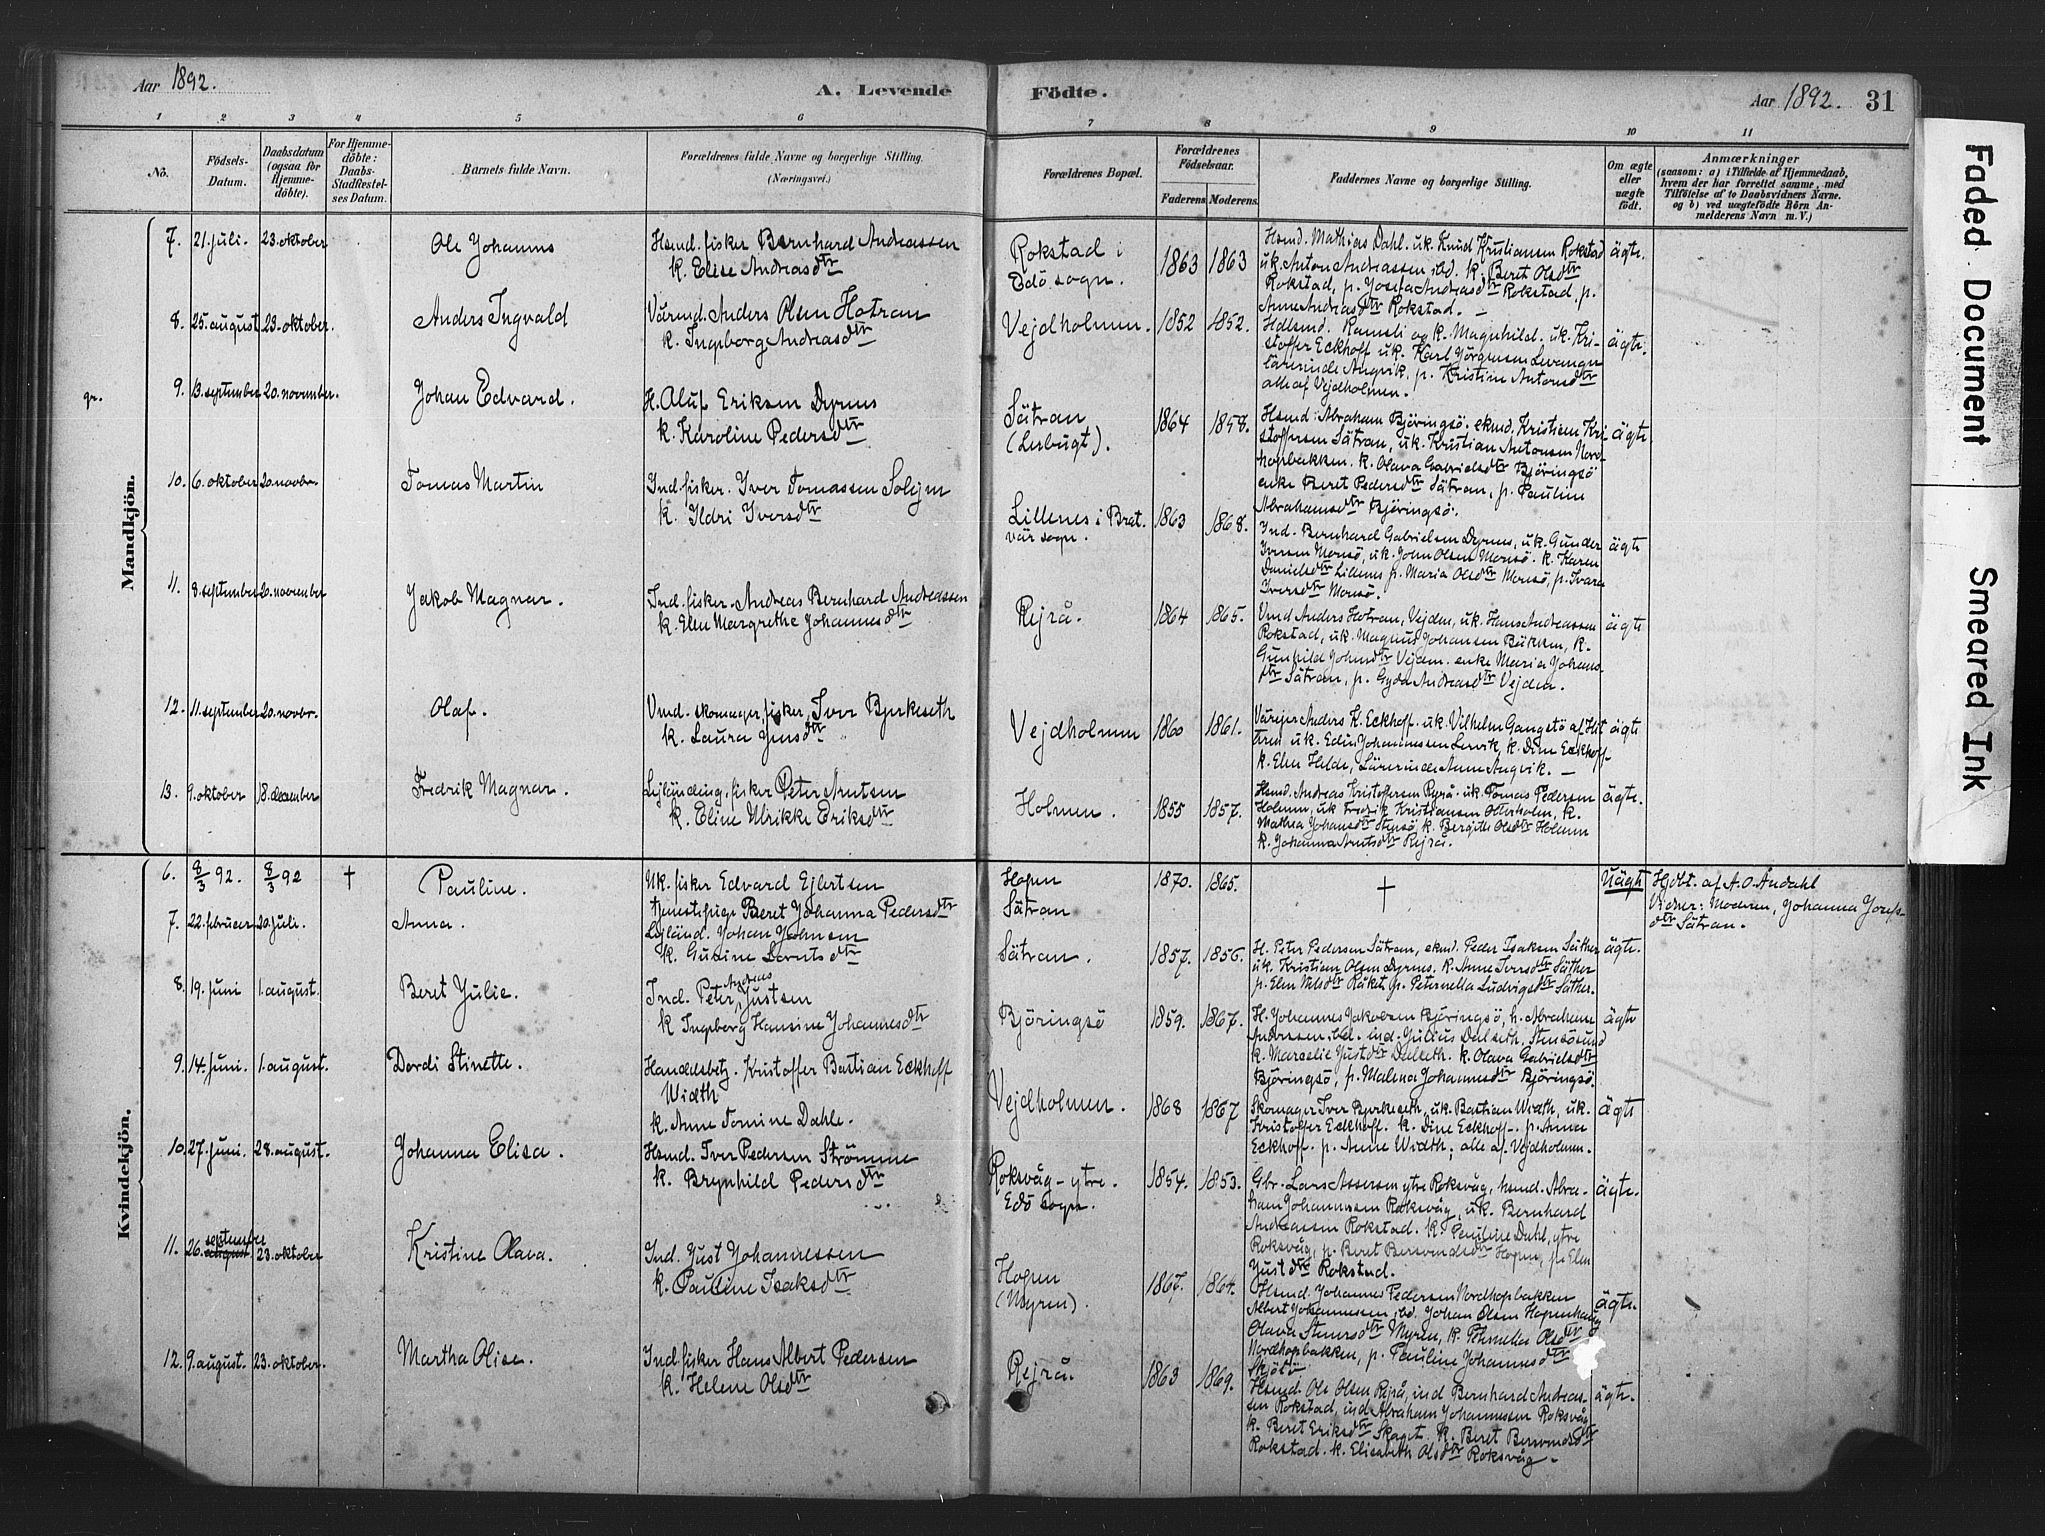 Aar 1892.
A. Levende Födte.
Aar 1892. 31
1 2 3 4 5 6 7 8 9 10 11
No.
Födsels-Datum.
Daabsdatum (ogsaa for Hjemme-döbte).
For Hjemme-döbte: Daabs-Stadfæstel-ses Datum.
Barnets fulde Navn.
Forældrenes fulde Navne og borgerlige Stilling. (Næringsvei.)
Forældrenes Bopæl.
Forældrenes Födselsaar.
Faderens Moderens
Faddernes Navne og borgerlige Stilling.
Om ægte eller uægte födt.
Anmærkninger
(saasom: a) i Tilfælde af Hjemmedaab, hvem der har forrettet samme, med Tilföielse af to Daabsvidners Navne. og b) ved uægtefödte Börn An-melderens Navn m. V.)
Mandkjön.
7. 21. juli. 23. oktober Ole Johannes
Hsmd. fisker Bernhard Andreassen
k. Elise Andreasdtr
Rokstad i Edö sogn. 1863 1863
Hsmd. Mathias Dahl. uk. Knud Kristiansen Rokstad
uk. Anton Andreassen ibd. k. Beret Olsdtr
Rokstad, p. Josefa Andreasdtr Rokstad, p.
Anne Andreasdtr Rokstad. —
ägte.
8. 25. august 23. oktober. Anders Ingvald
Vårmd. Anders Olsen Hotran
k. Ingeborg Andreasdtr
Vejdholmen. 1852 1852.
Hdlsmd. Ramsli og k. Magnhild. uk. Kri-
stoffer Eckhoff uk. Karl Jörgensen Levanger
lärerinde Angvik. p. Kristine Antonsdtr
alle af Vejdholmen.
ägte.
gr.
9. 13. september 20. november. Johan Edvard.
H. Aluf Eriksen Dyrnes
k. Karoline Pedersdtr
Sätran (Lerbugt). 1864 1858.
Hsmd. Abraham Björingsö. ekmd. Kristian Kri-
stoffersen Sätran, uk. Kristian Antonsen Nord-
hopbakken. k. Olava Gabrielsdtr Björingsö
enke Beret Pedersdtr Sätran, p. Pauline
Abrahamsdtr Björingsö.
ägte.
10. 6. oktober 20. novbr. Tomas Martin
Ind. fisker. Iver Tomassen Solejm
k. Ildri Iversdtr
Lillenes i Brat-
vär sogn. 1863 1868.
Ind. Bernhard Gabrielsen Dyrnes, uk. Gunder
Iversen Monsö, uk. John Olsen Monsö. k. Karen
Danielsdtr Lillenes p. Maria Olsdtr Monsö, p. Ivara
Iversdtr Monsö.
ägte
11. 8. september 20. november Jakob Magnar.
Ind. fisker. Andreas Bernhard Andreassen
k. Elen Margrethe Johannesdtr
Rejrå. 1864 1865.
Vmd Anders Hotran, Vejden, uk. Hans Andreassen
Rokstad, uk. Magnus Johansen Bäkken, k.
Gunhild Johnsdtr Vejden. enke Maria Johans-
dtr Sätran, p. Gyda Andreasdtr Vejden.
ägte
12. 11. september 20. novbr. Olaf.
Vmd. skomager, fisker, Iver Bjerkeseth
k. Laura Jensdtr
Vejdholmen 1860 1861.
Värejer Anders H. Eckhoff. uk. Vilhelm Gangstö af Hit
tren uk. Edin Johannessen Lervik, k. Dine Eckhoff-
k. Elen Helde, Lärerinde Anne Angvik. —
ägte
13. 9. oktober 18. december Fredrik Magnar.
Lejlünding, fisker Peter Arntsen
k. Eline Ulrikke Eriksdtr
Holmen. 1855 1857.
Hsmd. Andreas Kristoffersen Rejrå. uk. Tomas Pedersen
Holmen, uk Fredrik Kristiansen Otterholm, k.
Mathea Johansdtr Stensö, k. Bergitte Olsdtr Holmen
k. Johanna Arntsdtr Rejrå.
ägte.
Kvindekjön.
6. 8/3 92. 8/3 92 † Pauline.
Uk. fisker Edvard Ejlertsen
tjenestepige Beret Johanna Pedersdtr
Hopen
Sätran
1870. 1865. † Uägte
Hjdbt. af A. O. Andahl
Vidner: Moderen, Johanna Josefs-
dtr Sätran.
7. 22. februar 20. juli. Anna.
Lejländ. Johan Johnsen
k. Gurine Berntsdtr
Sätran. 1857. 1856.
H. Peter Pedersen Sätran, ekmd. Peder Isaksen Säther
uk. Kristian Olsen Dyrnes. k. Anne Iversdtr Säther
p. Elen Nilsdtr Råket, p. Peternella Ludvigsdtr Säther.
ägte.
8. 19. juni 1. august. Beret Julie.
Ind. Peter Andreas Justsen
k Ingeborg Hansine Johannesdtr
Björingsö 1859. 1867.
H. Johannes Jakobsen Björingsö, h. Abraham
Andersen ibd. ind. Julius Dalseth, Stensösund
k. Marselie Justdtr Dalseth. k. Olava Gabrielsdtr
Björingsö, p. Malena Johannesdtr Björingsö.
ägte
9. 14. juni. 1. august. Dordi Stinette.
Handelsbetj. Kristoffer Bastian Eckhoff
Width
k. Anne Tomine Dahle.
Vejdholmen. 1868 1867
Skomager Iver Bjerkeseth, uk. Bastian Width, uk.
Kristoffer Eckhoff. k. Dine Eckhoff. p. Anna
Eckhoff. p. Anne Width; alle af Vejdholmen.
ägte
10. 27. juni. 28. august. Johanna Elisa.
Hsmd. Iver Pedersen Strömme
k. Brynhild Pedersdtr
Roksvåg - ytre.
Edö sogn. 1854. 1853.
Gbr. Lars Assersen ytre Roksvåg, hsmd. Abra-
ham Johannesen Roksvåg, uk. Bernhard
Andreassen Rokstad. k. Pauline Dahl, ytre
Roksvåg, p. Beret Berventsdtr Hopen, p. Elen
Justdtr Rokstad.
ägte.
11. 26. august septembre 23. oktober Kristine Olava.
Ind. Just Johannessen
k. Pauline Isaksdtr
Hopen (Myren). 1867. 1864.
Hsmd. Johannes Pedersen Nordhopbakken
Albert Johannesen ibd. Johan Olsen Hopenhaug
Olava Stenersdtr Myren, k. Petrnella Olsdtr
Nordhopbakken, p. Pauline Johannesdtr
Skjölö
ägte.
12. 9. august. 23. oktober. Martha Olise.
Ind. fisker Hans Albert Pedersen
k. Helene Olsdtr
Rejrå. 1863 1869.
Hsmd. Ole Olsen Rejrå, ind Bernhard Andreas-
sen Rokstad, ind Abraham Johannessen Roksvåg
k. Beret Eriksdtr Skaget. k. Beret Bersvendsdtr
Rokstad. k. Elisabeth Olsdtr Roksvåg.
ägte.
Faded Document
Smeared Ink